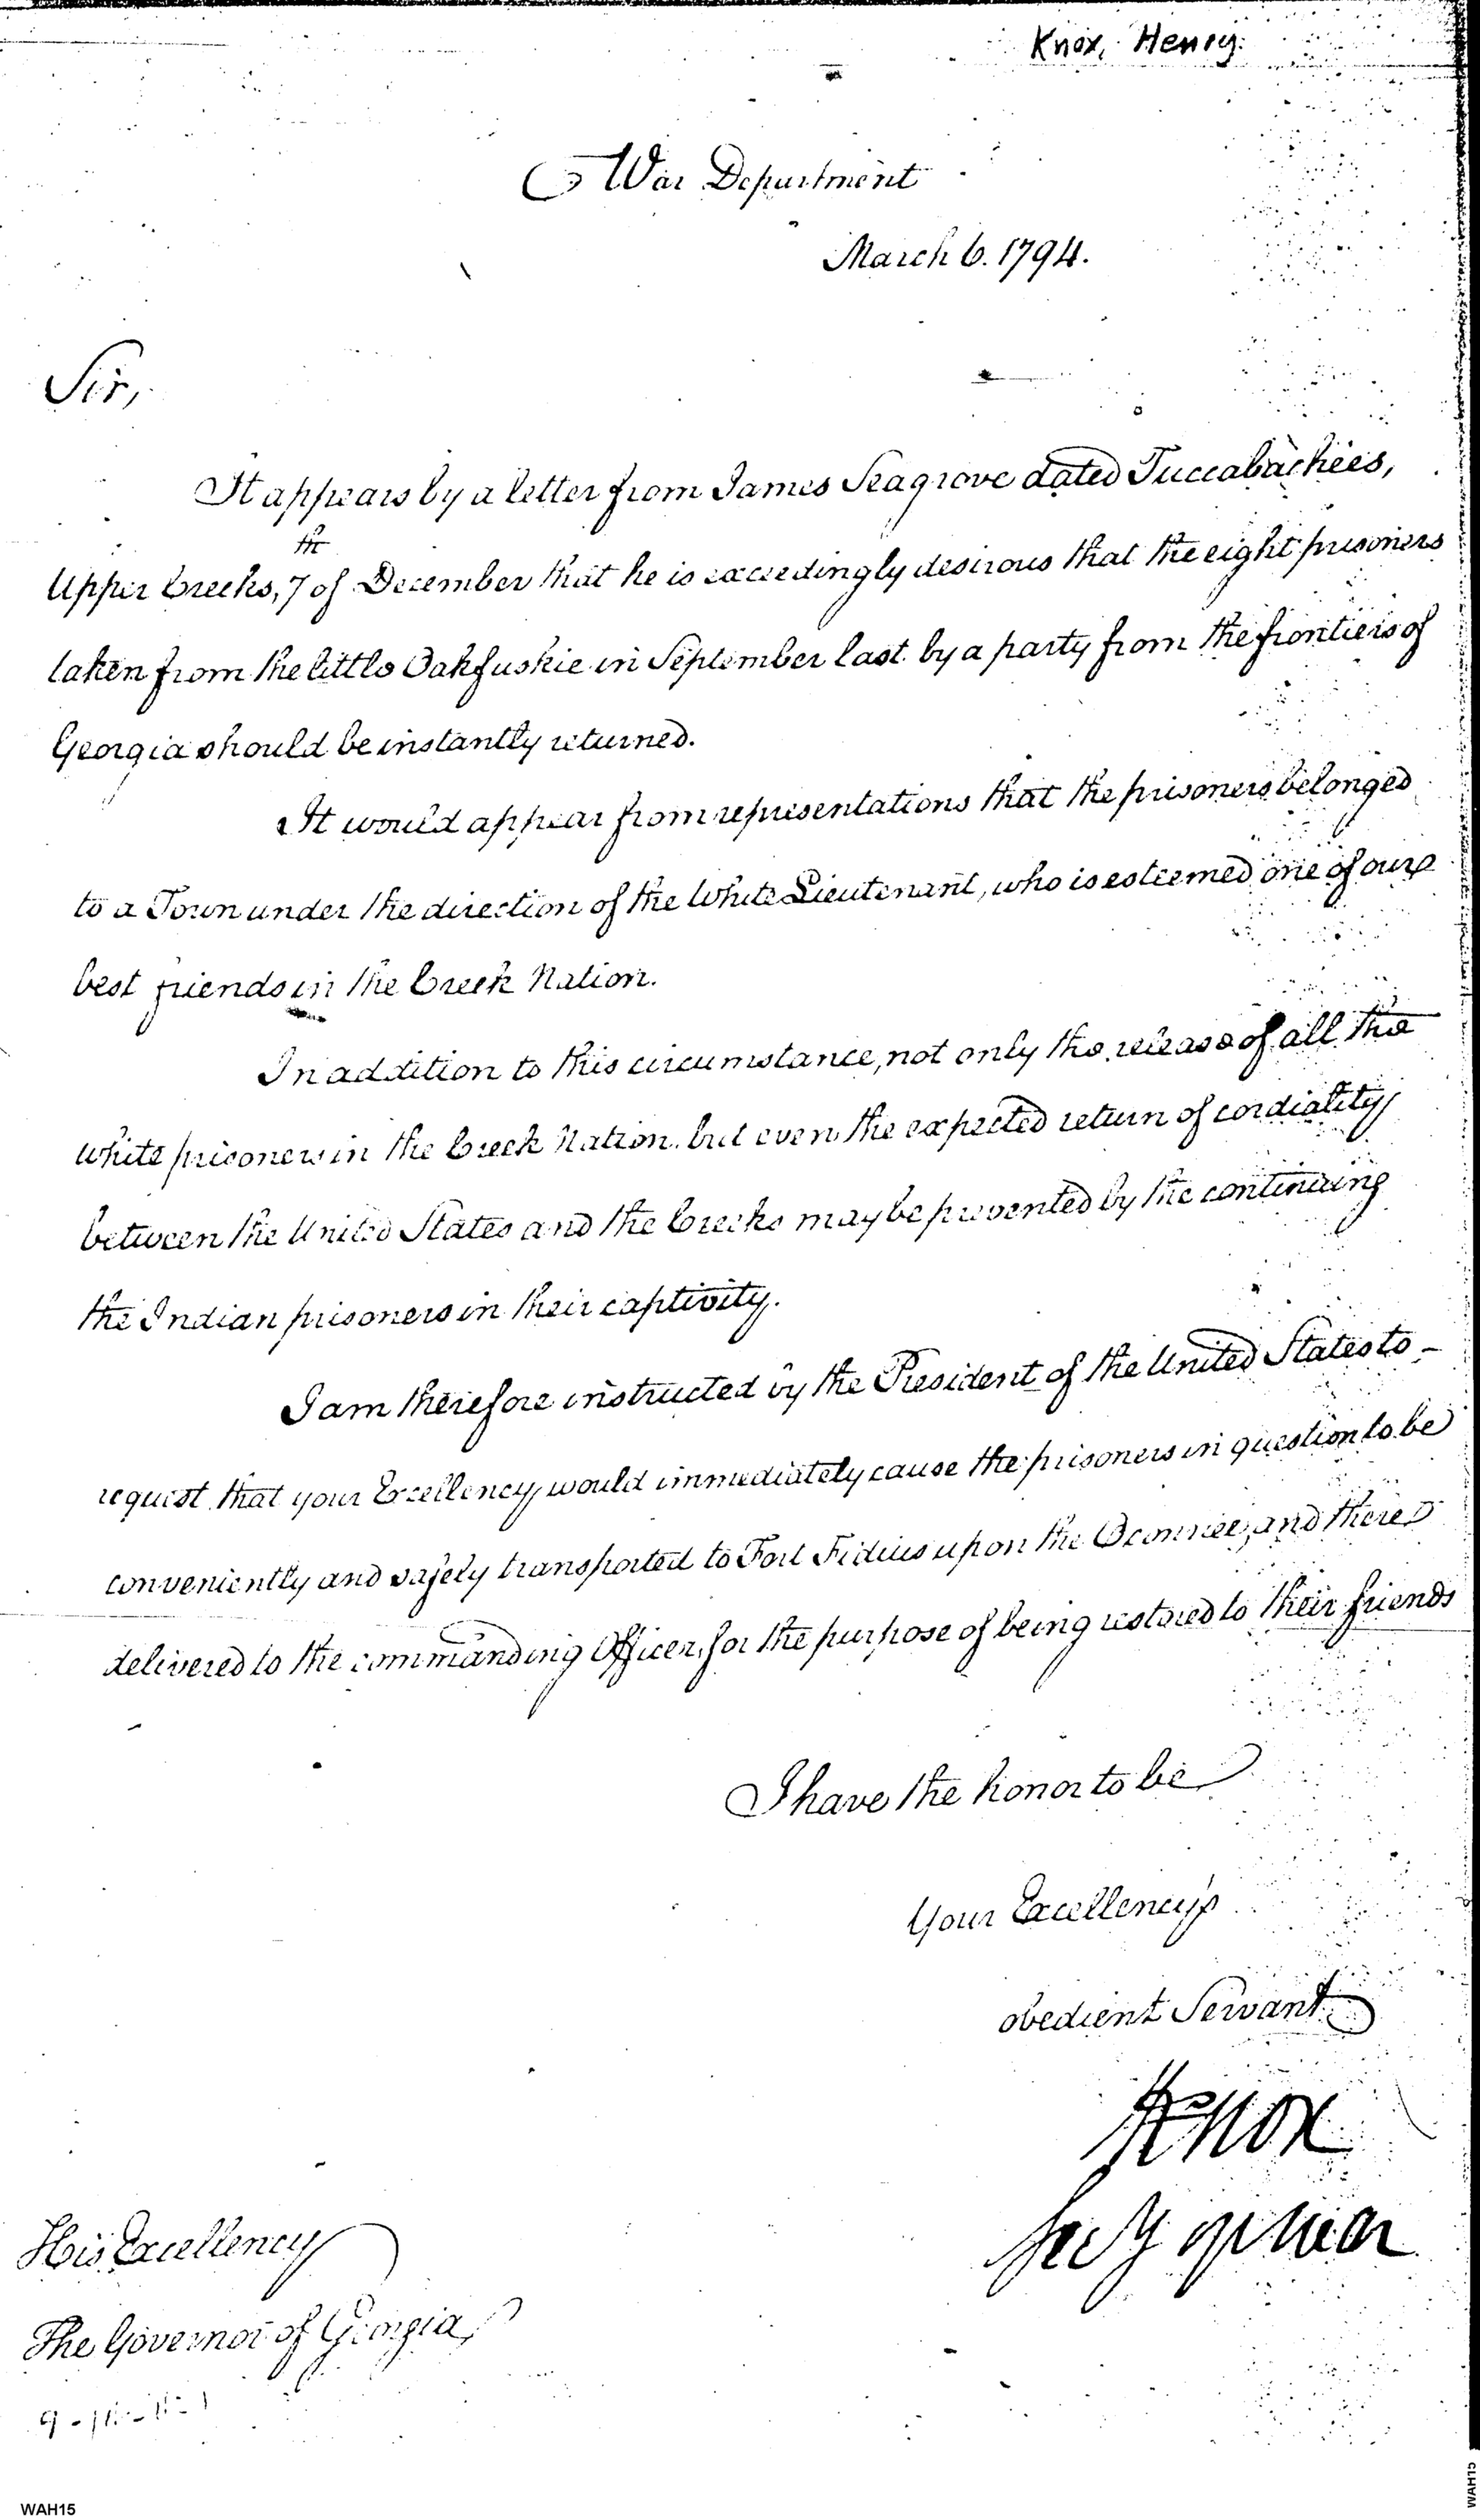 Knox, Henry.
War Department
March 6. 1794.
Sir,
It appears by a letter from James Seagrove dated Tuccabachees,
Upper Creeks, 7th of December that he is exceedingly desirous that the eight prisoners
taken from the little Oakfuskie in September last by a party from the frontiers of
Georgia should be instantly returned.
It would appear from representations that the prisoners belonged
to a Town under the direction of the White Lieutenant, who is esteemed one of our
best friends in the Creek Nation.
In addition to this circumstance, not only the release of all the
white prisoners in the Creek Nation but even the expected return of cordiality
between the United States and the Creeks may be prevented by the continuing
the Indian prisoners in their captivity.
I am therefore instructed by the President of the United States to
request that your Excellency would immediately cause the prisoners in question to be
conveniently and safely transported to Fort Fidius upon the Oconnee, and there
delivered to the commanding Officer, for the purpose of being restored to their friends
I have the honor to be
Your Excellency's
obedient Servant
HKnox
Secy of War
His Excellency
The Governor of Georgia
WAH15
WAH15